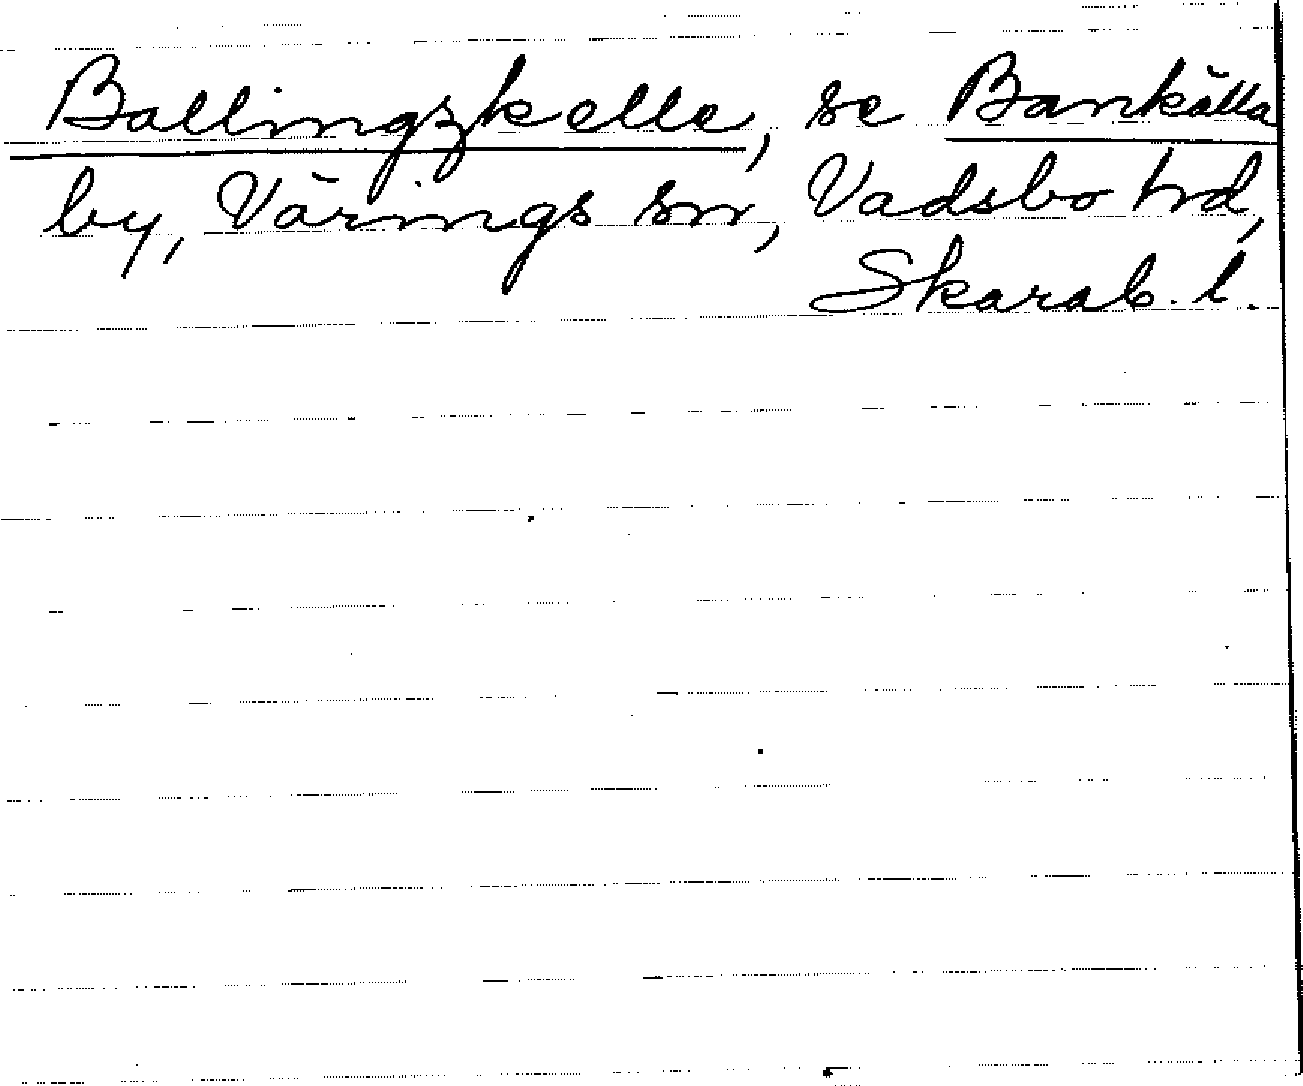 Ballingzkelle, se Bankälla
by, Värings sn, Vadsbo hd,
Skarab. l.